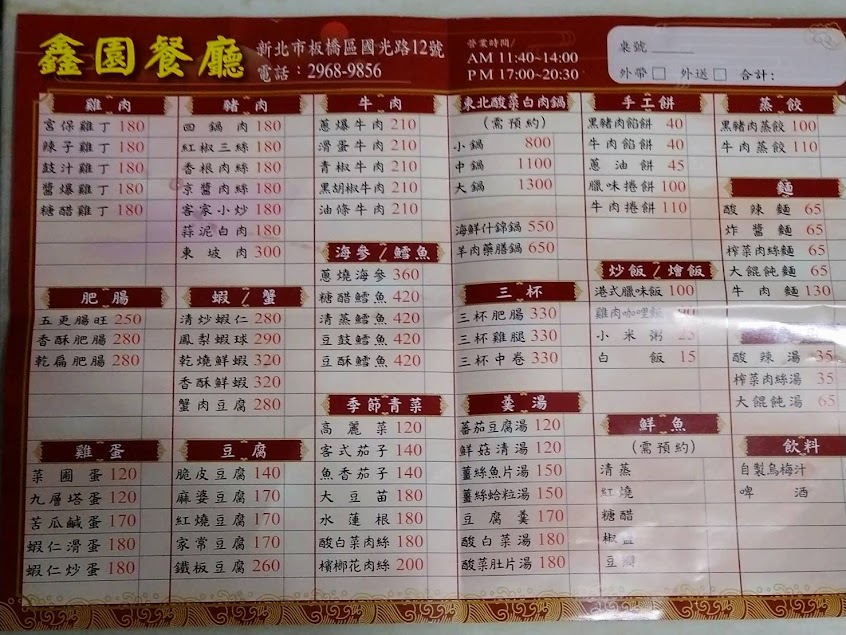 鑫園餐廳
新北市板橋區國光路12號
電話：2968-9856
營業時間/
AM 11:40~14:00
PM 17:00~20:30
桌號
外帶□ 外送□ 合計:
雞肉
宮保雞丁 180
辣子雞丁 180
豉汁雞丁 180
醬爆雞丁 180
糖醋雞丁 180
肥腸
五更腸旺 250
香酥肥腸 280
乾扁肥腸 280
雞蛋
菜圃蛋 120
九層塔蛋 120
苦瓜鹹蛋 170
蝦仁滑蛋 180
蝦仁炒蛋 180
豬肉
回鍋肉 180
紅椒三絲 180
香根肉絲 180
京醬肉絲 180
客家小炒 180
蒜泥白肉 180
東坡肉 300
蝦/蟹
清炒蝦仁 280
鳳梨蝦球 290
乾燒鮮蝦 320
香酥鮮蝦 320
蟹肉豆腐 280
豆腐
脆皮豆腐 140
麻婆豆腐 170
紅燒豆腐 170
家常豆腐 170
鐵板豆腐 260
牛肉
蔥爆牛肉 210
滑蛋牛肉 210
青椒牛肉 210
黑胡椒牛肉 210
油條牛肉 210
海參/鱈魚
蔥燒海參 360
糖醋鱈魚 420
清蒸鱈魚 420
豆鼓鱈魚 420
豆酥鱈魚 420
季節青菜
高麗菜 120
客式茄子 140
魚香茄子 140
大豆苗 180
水蓮根 180
酸白菜肉絲 180
檳榔花肉絲 200
東北酸菜白肉鍋
(需預約)
小鍋 800
中鍋 1100
大鍋 1300
海鮮什錦鍋 550
羊肉藥膳鍋 650
三杯
三杯肥腸 330
三杯雞腿 330
三杯中卷 330
羹湯
蕃茄豆腐湯 120
鮮菇清湯 120
薑絲魚片湯 150
薑絲蛤粒湯 150
豆腐羹 170
酸白菜湯 180
酸菜肚片湯 180
手工餅
黑豬肉餡餅 40
牛肉餡餅 40
蔥油餅 45
臘味捲餅 100
牛肉捲餅 110
炒飯/燴飯
港式臘味飯 100
雞肉咖哩飯
小米粥 25
白飯 15
鮮魚
(需預約)
清蒸
紅燒
糖醋
椒鹽
豆瓣
蒸餃
黑豬肉蒸餃 100
牛肉蒸餃 110
麵
酸辣麵 65
炸醬麵 65
榨菜肉絲麵 65
大餛飩麵 65
牛肉麵 130
酸辣湯 35
榨菜肉絲湯 35
大餛飩湯 65
飲料
自製烏梅汁
啤酒